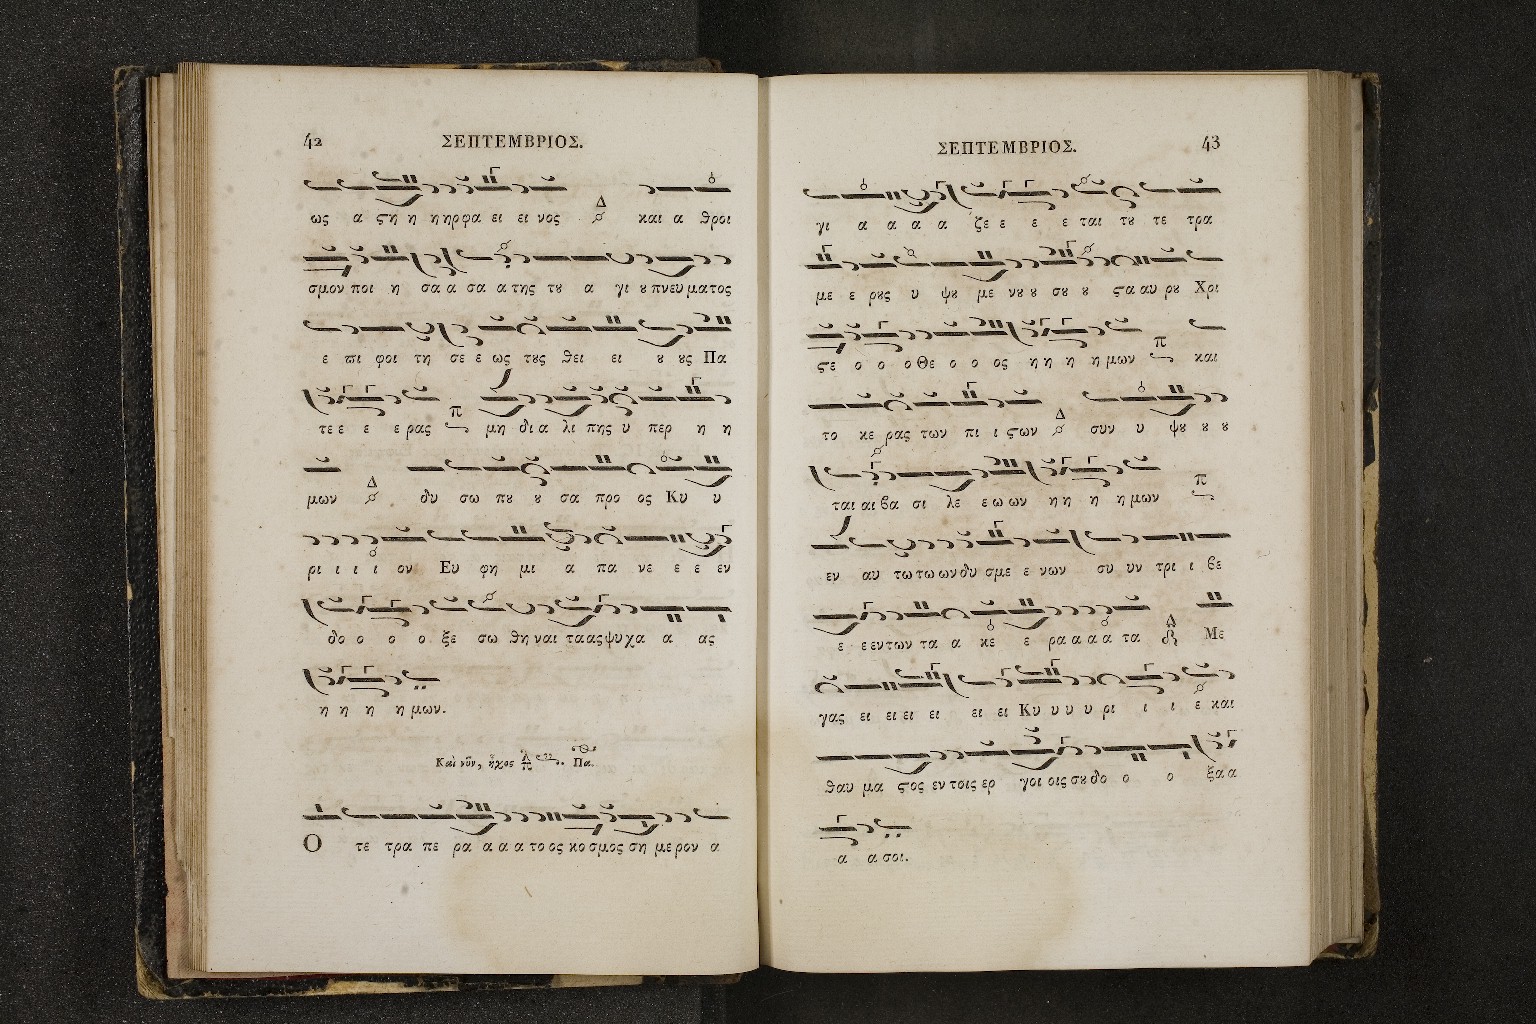 42 ΣΕΠΤΕΜΒΡΙΟΣ.
ως α ϛη η ηηρφα ει ει νος Δ και α θροι
σμον ποι η σα α σα α της τȣ α γι ȣ πνευ ματος
ε πι φοι τη σε ε ως τȣς θει ει ȣ ȣς Πα
τε ε ε ε ρας π μη δι α λι πης υ περ η η
μων Δ δυ σω πȣ ȣ σα προ ος Κυ υ
ρι ι ι ι ον Ευ φη μι α πα νε ε ε εν
δο ο ο ο ξε σω θη ναι τα ας ψυ χα α ας
η η η η μων.
Καὶ νῦν, ἦχος Πα.
Ο τε τρα πε ρα α α α το ος κο σμος ση με ρον α
ΣΕΠΤΕΜΒΡΙΟΣ. 43
γι α α α α ζε ε ε ε ται τȣ τε τρα
με ε ρȣς υ ψȣ με νȣ ȣ σȣ ȣ ϛα αυ ρȣ Χρι
ϛε ο ο ο Θε ο ο ος η η η η μων π και
το κε ρας των πι ι ϛων Δ συν υ ψȣ ȣ ȣ
ται αι βα σι λε ε ω ων η η η η μων π
εν αυ τω τω ων δυ σμε ε νων συ υν τρι ι βε
ε ε εν των τα α κε ε ρα α α α τα Με
γας ει ει ει ει ει ει Κυ υ υ υ ρι ι ι ε και
θαυ μα ϛος εν τοις ερ γοι οις σȣ δο ο ο ξα α
α α σοι.